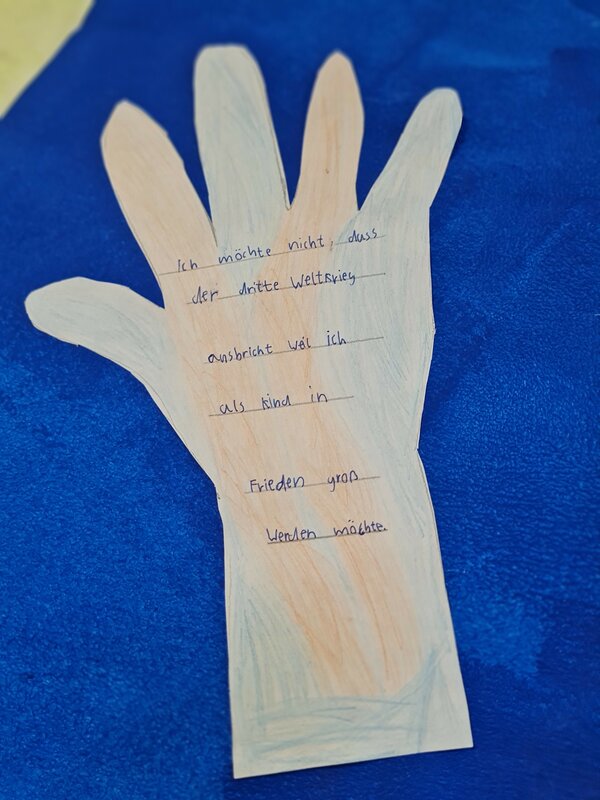 Ich möchte nicht, dass
der dritte Weltkrieg
ausbricht weil ich
als Kind in
Frieden groß
Werden möchte.